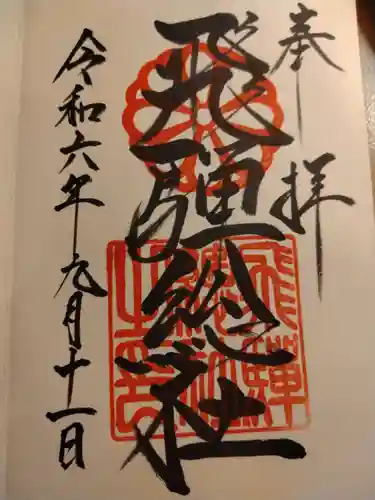 奉拝
飛騨総社
令和六年九月十一日
飛騨総社之印